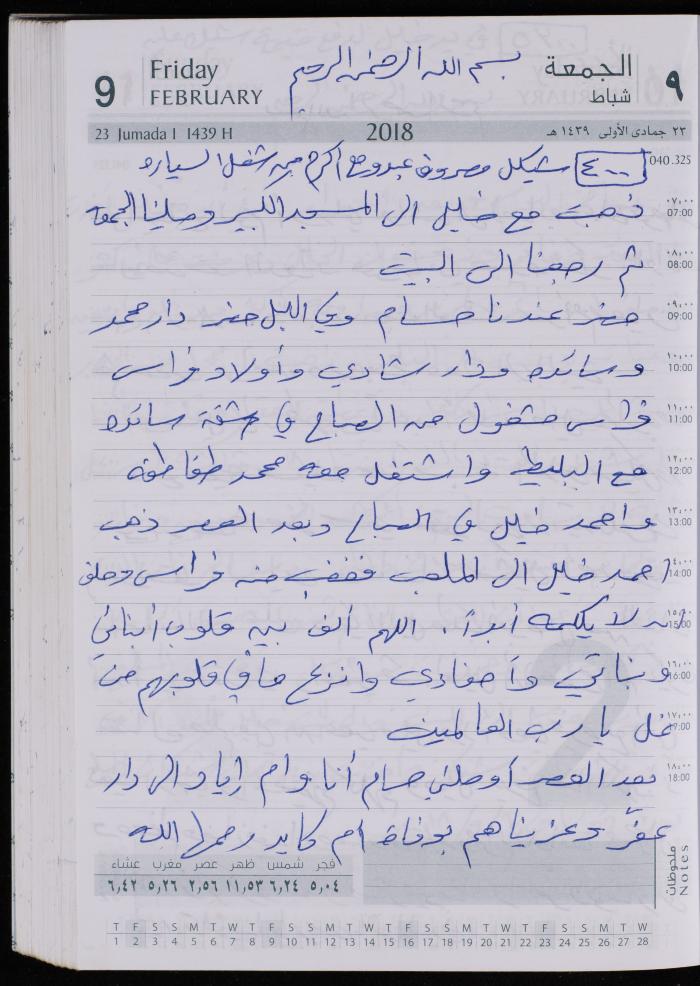 9 Friday FEBRUARY بسم الله الرحمن الرحيم الجمعة شباط ٩
23 Jumada I 1439 H 2018 ٢٣ جمادى الأولى ١٤٣٩ هـ
040.325
٤٠٠ شيكل مصروف عبد ومع أكرم من شغل السياره
٠٧:٠٠ 07:00
ذهبت مع خليل الى المسجد الكبير وصلينا الجمعه
٠٨:٠٠ 08:00
ثم رجعنا الى البيت
٠٩:٠٠ 09:00
حضر عندنا حسام وفي الليل حضر دار محمد
١٠:٠٠ 10:00
وسائده ودار شادي وأولاد فراس
١١:٠٠ 11:00
فراس مشغول من الصباح في شقة سائده
١٢:٠٠ 12:00
مع البليط واشتغل معه محمد طقاطقه
١٣:٠٠ 13:00
واحمد خليل في الصباح وبعد العصر ذهب
١٤:٠٠ 14:00
احمد خليل الى الملعب فغضب منه فراس وحلف
١٥:٠٠ 15:00
انه لا يكلمه أبداً. اللهم ألف بين قلوب أبنائي
١٦:٠٠ 16:00
وبناتي وأحفادي وانزع ما في قلوبهم من
١٧:٠٠ 17:00
غل يا رب العالمين
١٨:٠٠ 18:00
بعد العصر أوصلني حسام أنا وام إياد الى دار
وعزيناهم بوفاة أم كايد رحمها الله
ملحوظات Notes
فجر شمس ظهر عصر مغرب عشاء
٥,٠٤ ٦,٢٤ ١١,٥٣ ٢,٥٦ ٥,٢٦ ٦,٤٢
T F S S M T W T F S S M T W T F S S M T W T F S S M T W
1 2 3 4 5 6 7 8 9 10 11 12 13 14 15 16 17 18 19 20 21 22 23 24 25 26 27 28